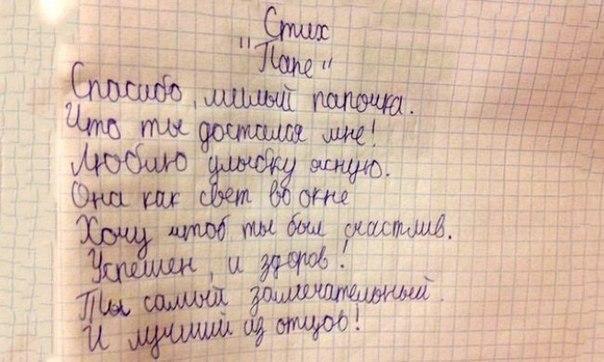 Стих
"Папе"
Спасибо, милый папочка.
Что ты достался мне!
Люблю улыбку ясную.
Она как свет во окне
Хочу чтоб ты был счастлив.
Успешен, и здоров!
Ты самый замечательный.
И лучший из отцов!